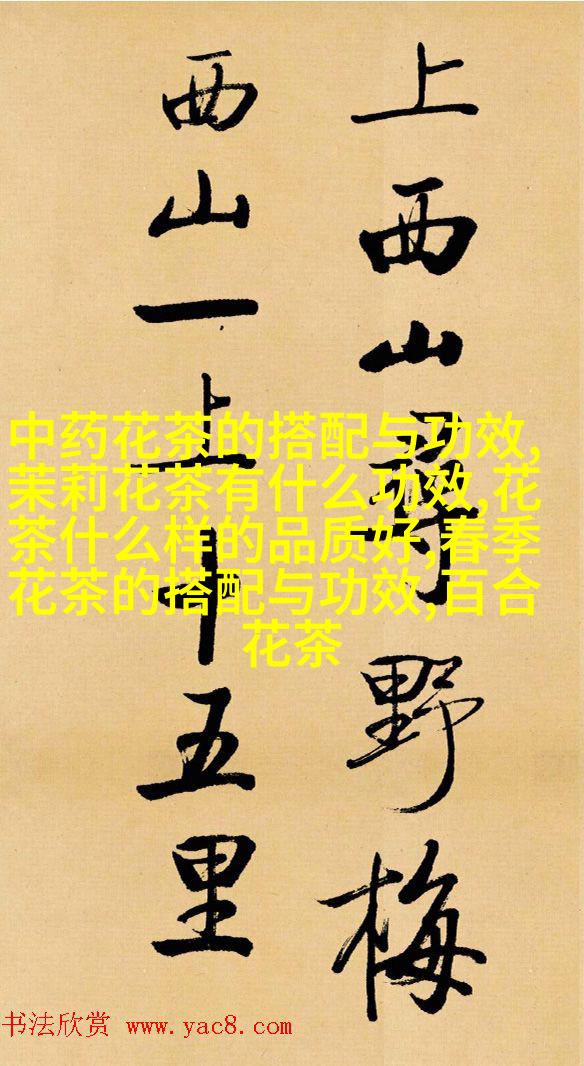 上西山尋野梅
西山一上十五里
中药花茶的搭配与功效,
茉莉花茶有什么功效,花
茶什么样的品质好,春季
花茶的搭配与功效,百合
花茶
书法欣赏 www.yac8.com